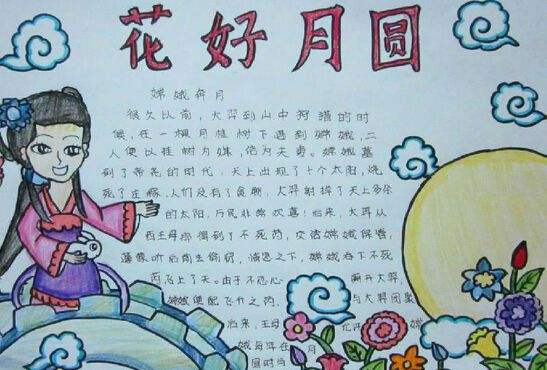 花好月圆
嫦娥奔月
很久以前，大羿到山中狩猎的时
候，在一棵月桂树下遇到嫦娥，二
人便以桂树为媒，结为夫妻。嫦娥墓
到了帝尧的时代，天上出现了十个太阳，烧
死了庄稼，人们没有了食物，大羿射掉了天上多余
的太阳，万民非常欢喜！后来，大羿从
西王母那得到了不死药，交给嫦娥保管。
逢蒙听后前去偷窃，嫦娥吞下不死
药飞上了天。由于不忍心 离开大羿，
嫦娥便 飞升之药， 与大羿团聚
后来，王母 嫦
娥每年在 月
圆时